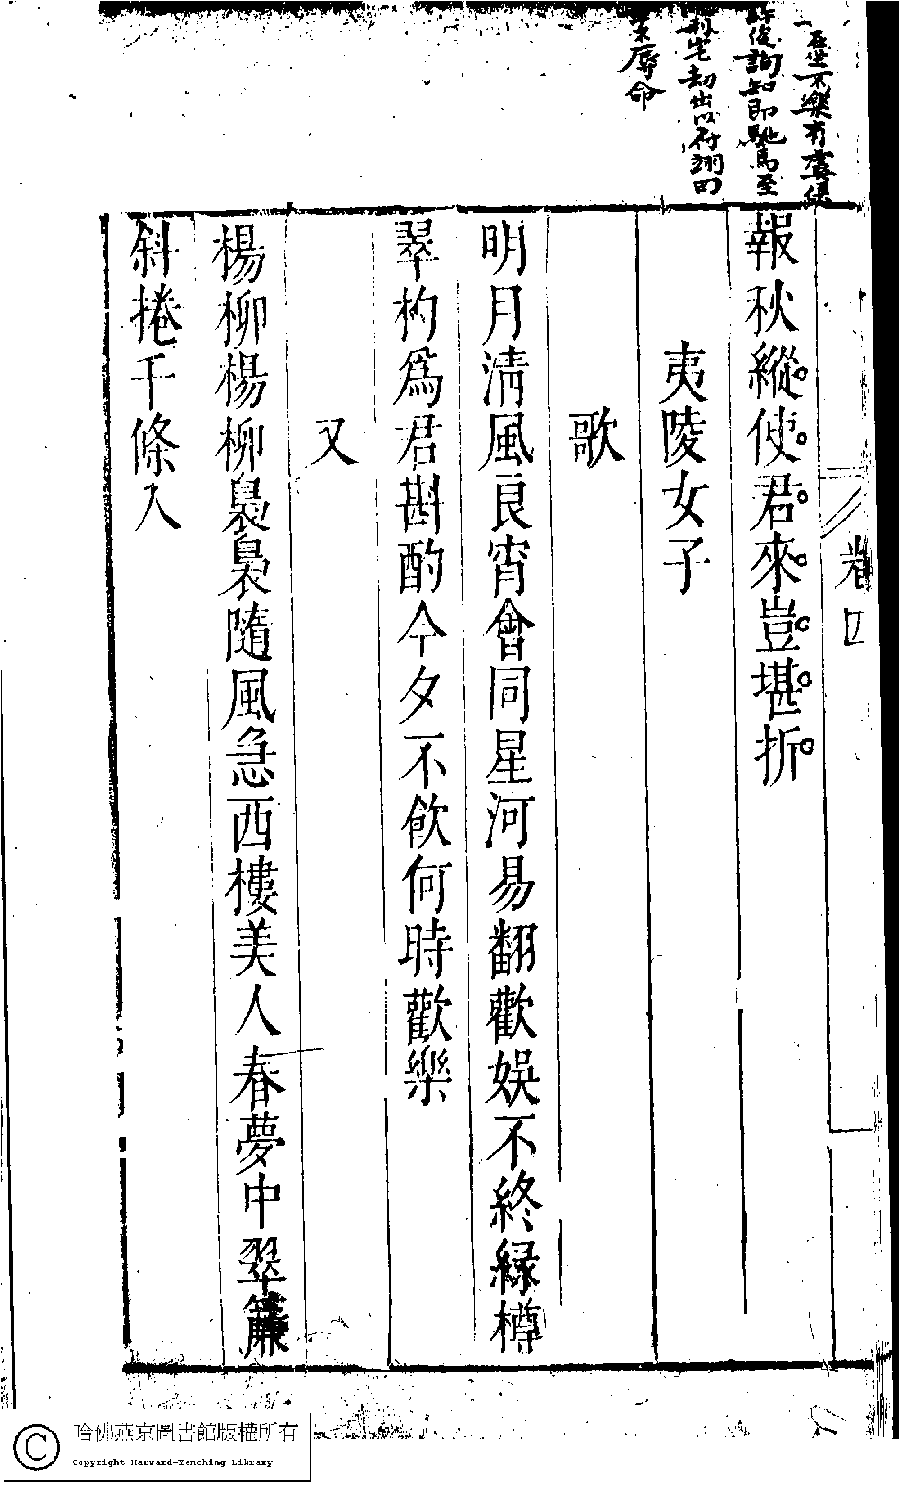 在坐不樂有虞候
許俊詢知即馳馬至
利宅劫出以付翊曰
幸不辱命
報秋縱使君來豈堪折
夷陵女子
歌
明月清風良宵會同星河易翻歡娛不終緑樽
翠杓爲君斟酌今夕不飲何時歡樂
又
楊柳楊柳裊裊隨風急西樓美人春夢中翠簾
斜捲千條入
卷四
哈佛燕京圖書館版權所有
Copyright Harvard-Yenching Library